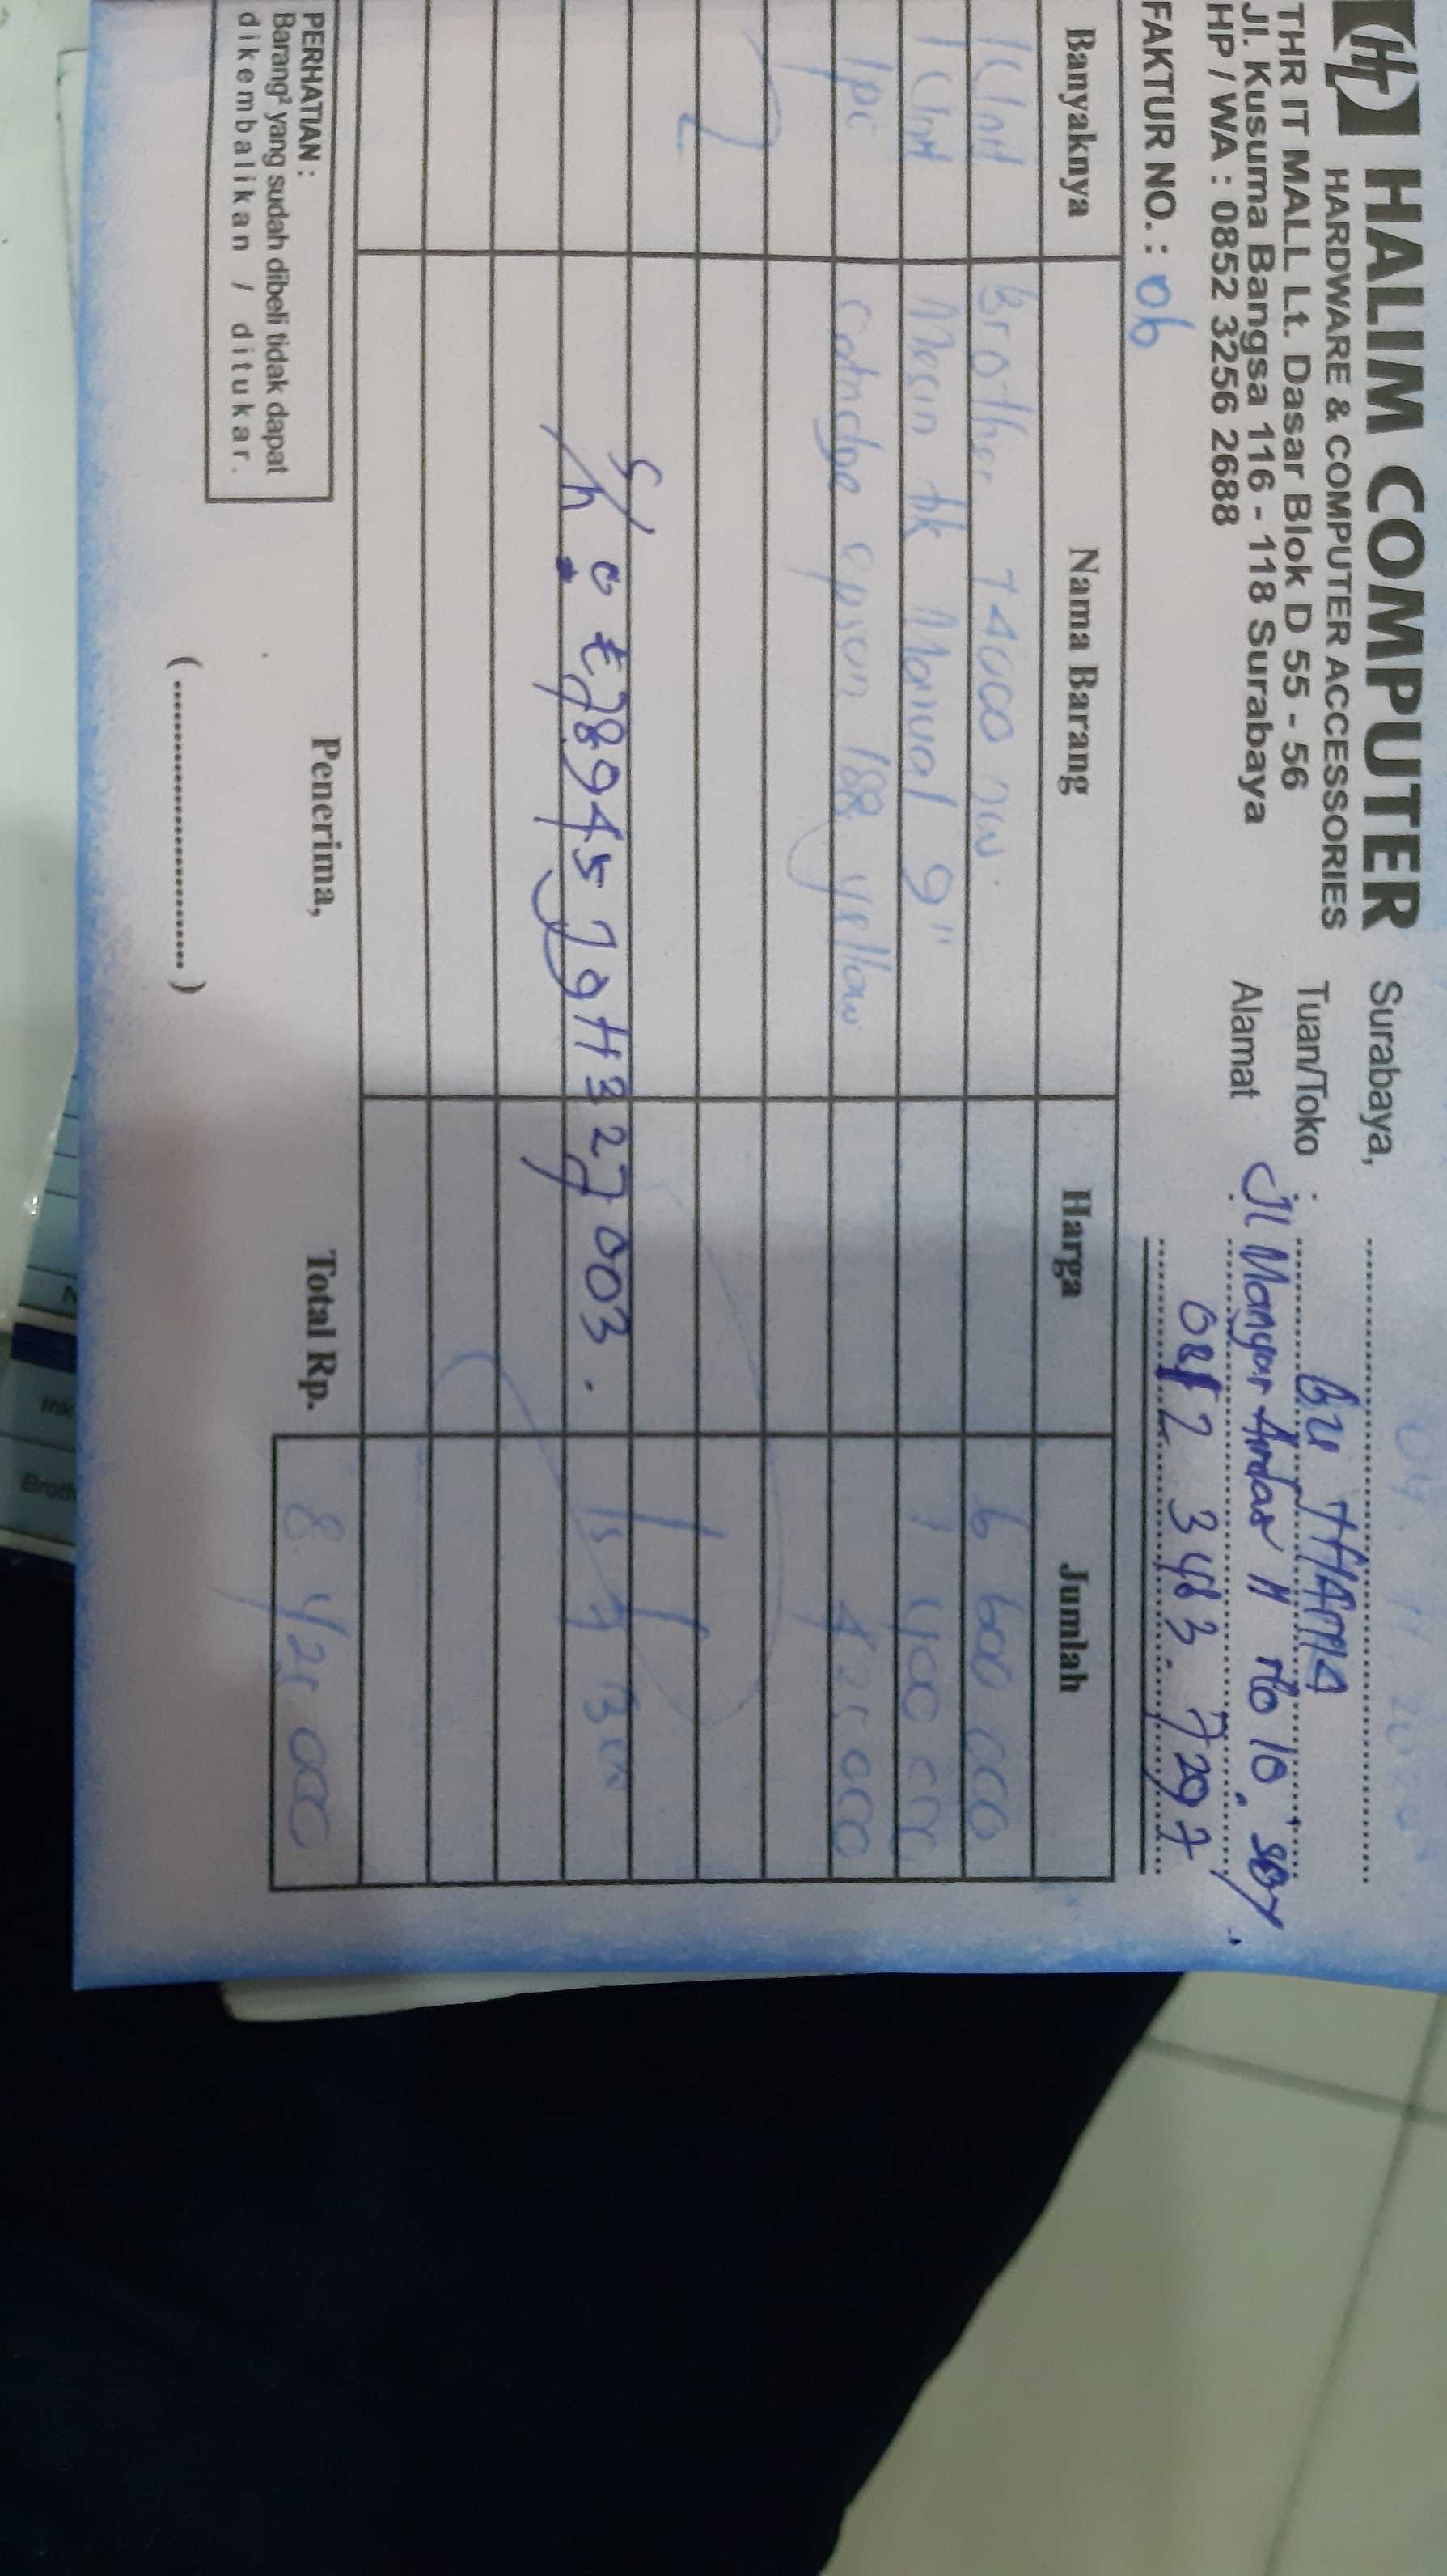 HT HALIM COMPUTER
HARDWARE & COMPUTER ACCESSORIES
THR IT MALL Lt. Dasar Blok D 55 - 56
Jl. Kusuma Bangsa 116 - 118 Surabaya
HP / WA : 0852 3256 2688
Surabaya,
Tuan/Toko : Bu THAMA
Alamat : Jl Manyar No 10. SBY.
3483. 7297
FAKTUR NO. : 06
Banyaknya Nama Barang Harga Jumlah
1 Unit Brother T4000 DW. 6 600 000
1 Unit Mesin Manual 9" 1 400 000
1 pc catridge epson 188 yellow 425 000
S/
N : E78945J9H327003.
Penerima, Total Rp. 8 425 000
PERHATIAN :
Barang² yang sudah dibeli tidak dapat
dikembalikan / ditukar.
(........................)
Ink
Broth